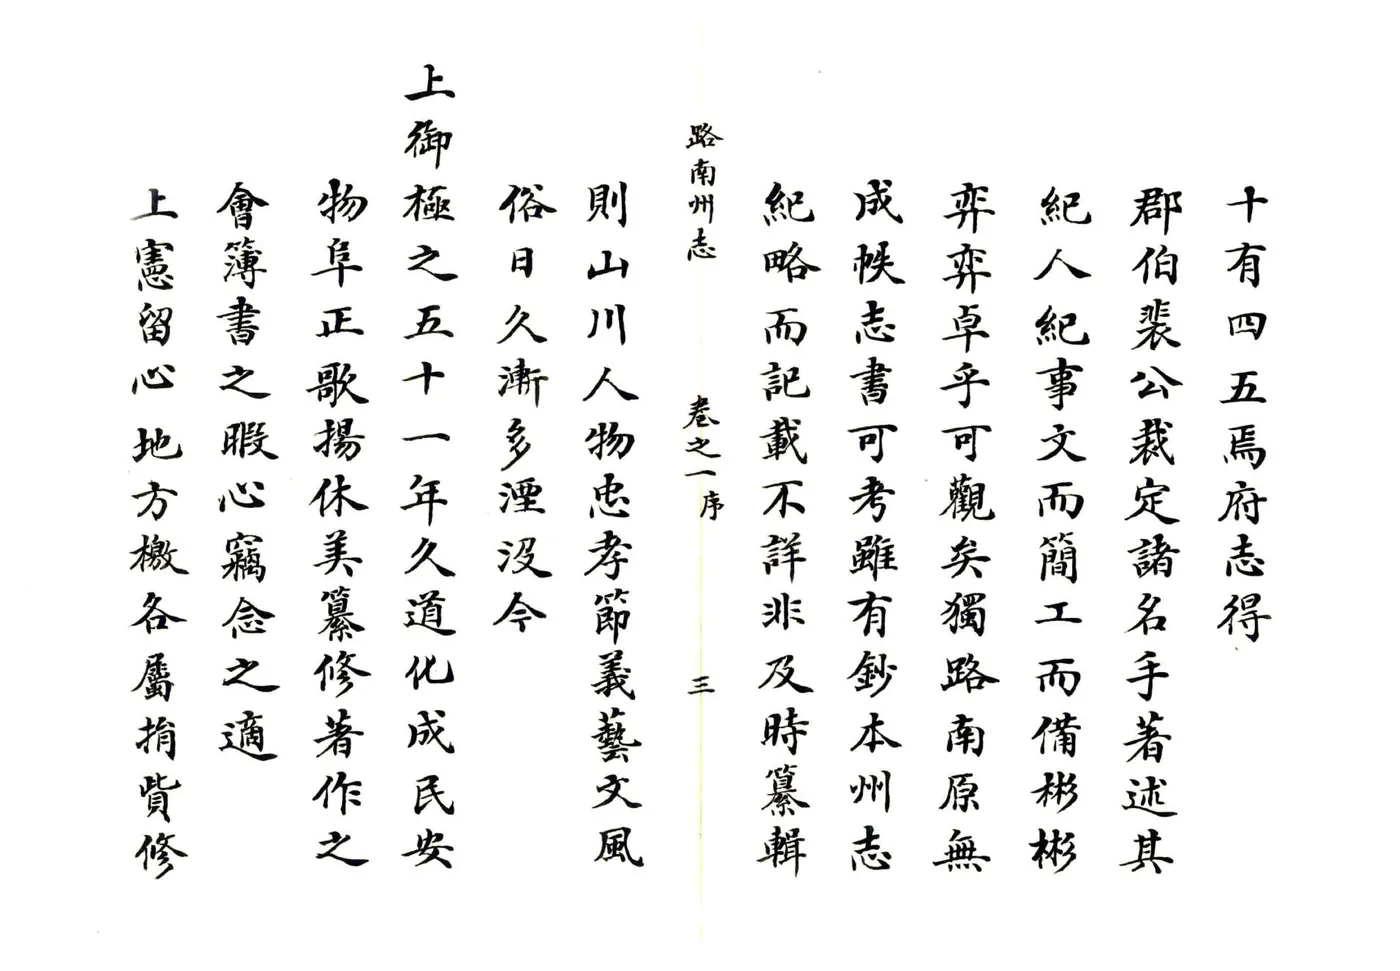 十有四五焉府志得
郡伯裴公裁定諸名手著述其
紀人紀事文而簡工而備彬彬
弈弈卓乎可觀矣獨路南原無
成帙志書可考雖有鈔本州志
紀略而記載不詳非及時纂輯
路南州志 卷之一序 三
則山川人物忠孝節義藝文風
俗日久漸多湮没今
上御極之五十一年久道化成民安
物阜正歌揚休美纂修著作之
會簿書之暇心竊念之適
上憲留心地方檄各屬捐貲修